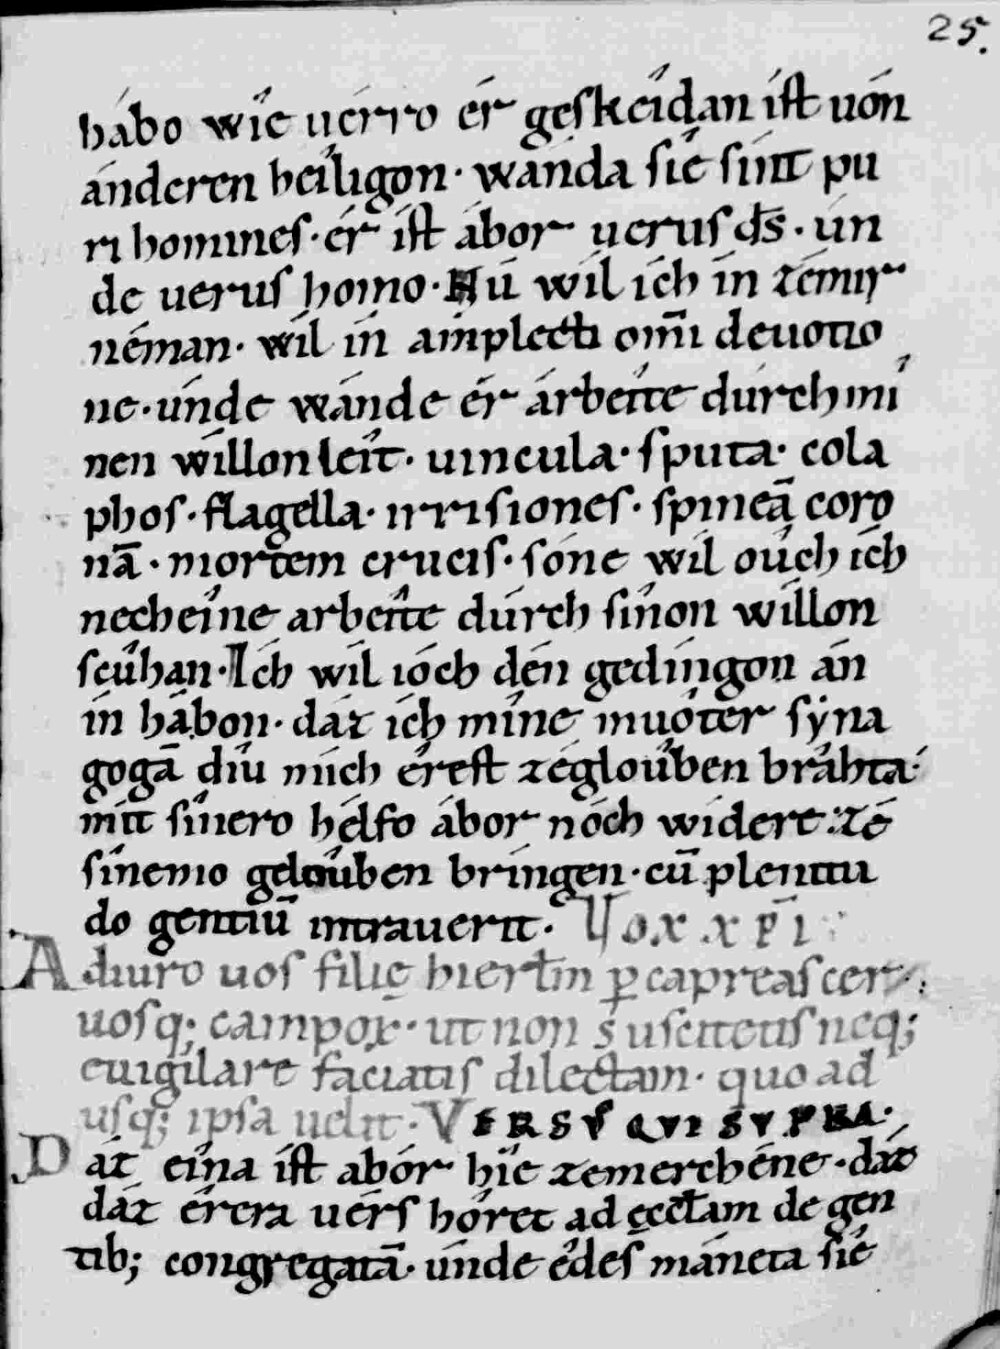 25.
hábo wíe uérro ér geſkeídan íſt uón
ánderen heíligon· wánda ſíe ſínt pu
ri homineſ· ér íſt ábor ueruſ dſ̄· ún
de ueruſ homo· Nú wíl ích ín zémir
néman· wíl ín amplecti om̄i deuotio
ne· únde wánde ér árbeite dúrch mí
nen wíllon leít· uincula· ſputa· cola
phoſ· flagella· irriſioneſ· ſpineā coro
nā· mortem cruciſ· ſóne wíl oúch ích
necheíne arbeíte dúrch ſínon wíllon
ſcúhan· Ich wíl ióch dén gedíngon án
ín hábon· dáz ích míne muóter ſýna
gogā díu mích éreſt zégloúben bráhta·
mít ſínero hélfo ábor nóch wídere zé
ſínemo gdoúben bríngen· cū plenitu
do gentiū intrauerit· Vox xp̄i·
Adiuro uoſ filię hierl̄m ꝑ capreaſ cer
uoſq; campoꝝ· ut non ſuſcitetiſ neq;
euigilare faciatiſ dilectam· quo ad
uſq; ipſa uelit· VERSVS QVI SVPRA·
Dáz eína íſt abór híe zemerchéne· dáz
dáz érera uérſ hóret ad ęccl̄am de gen
tib; congregatā· únde édeſ máneta ſíe